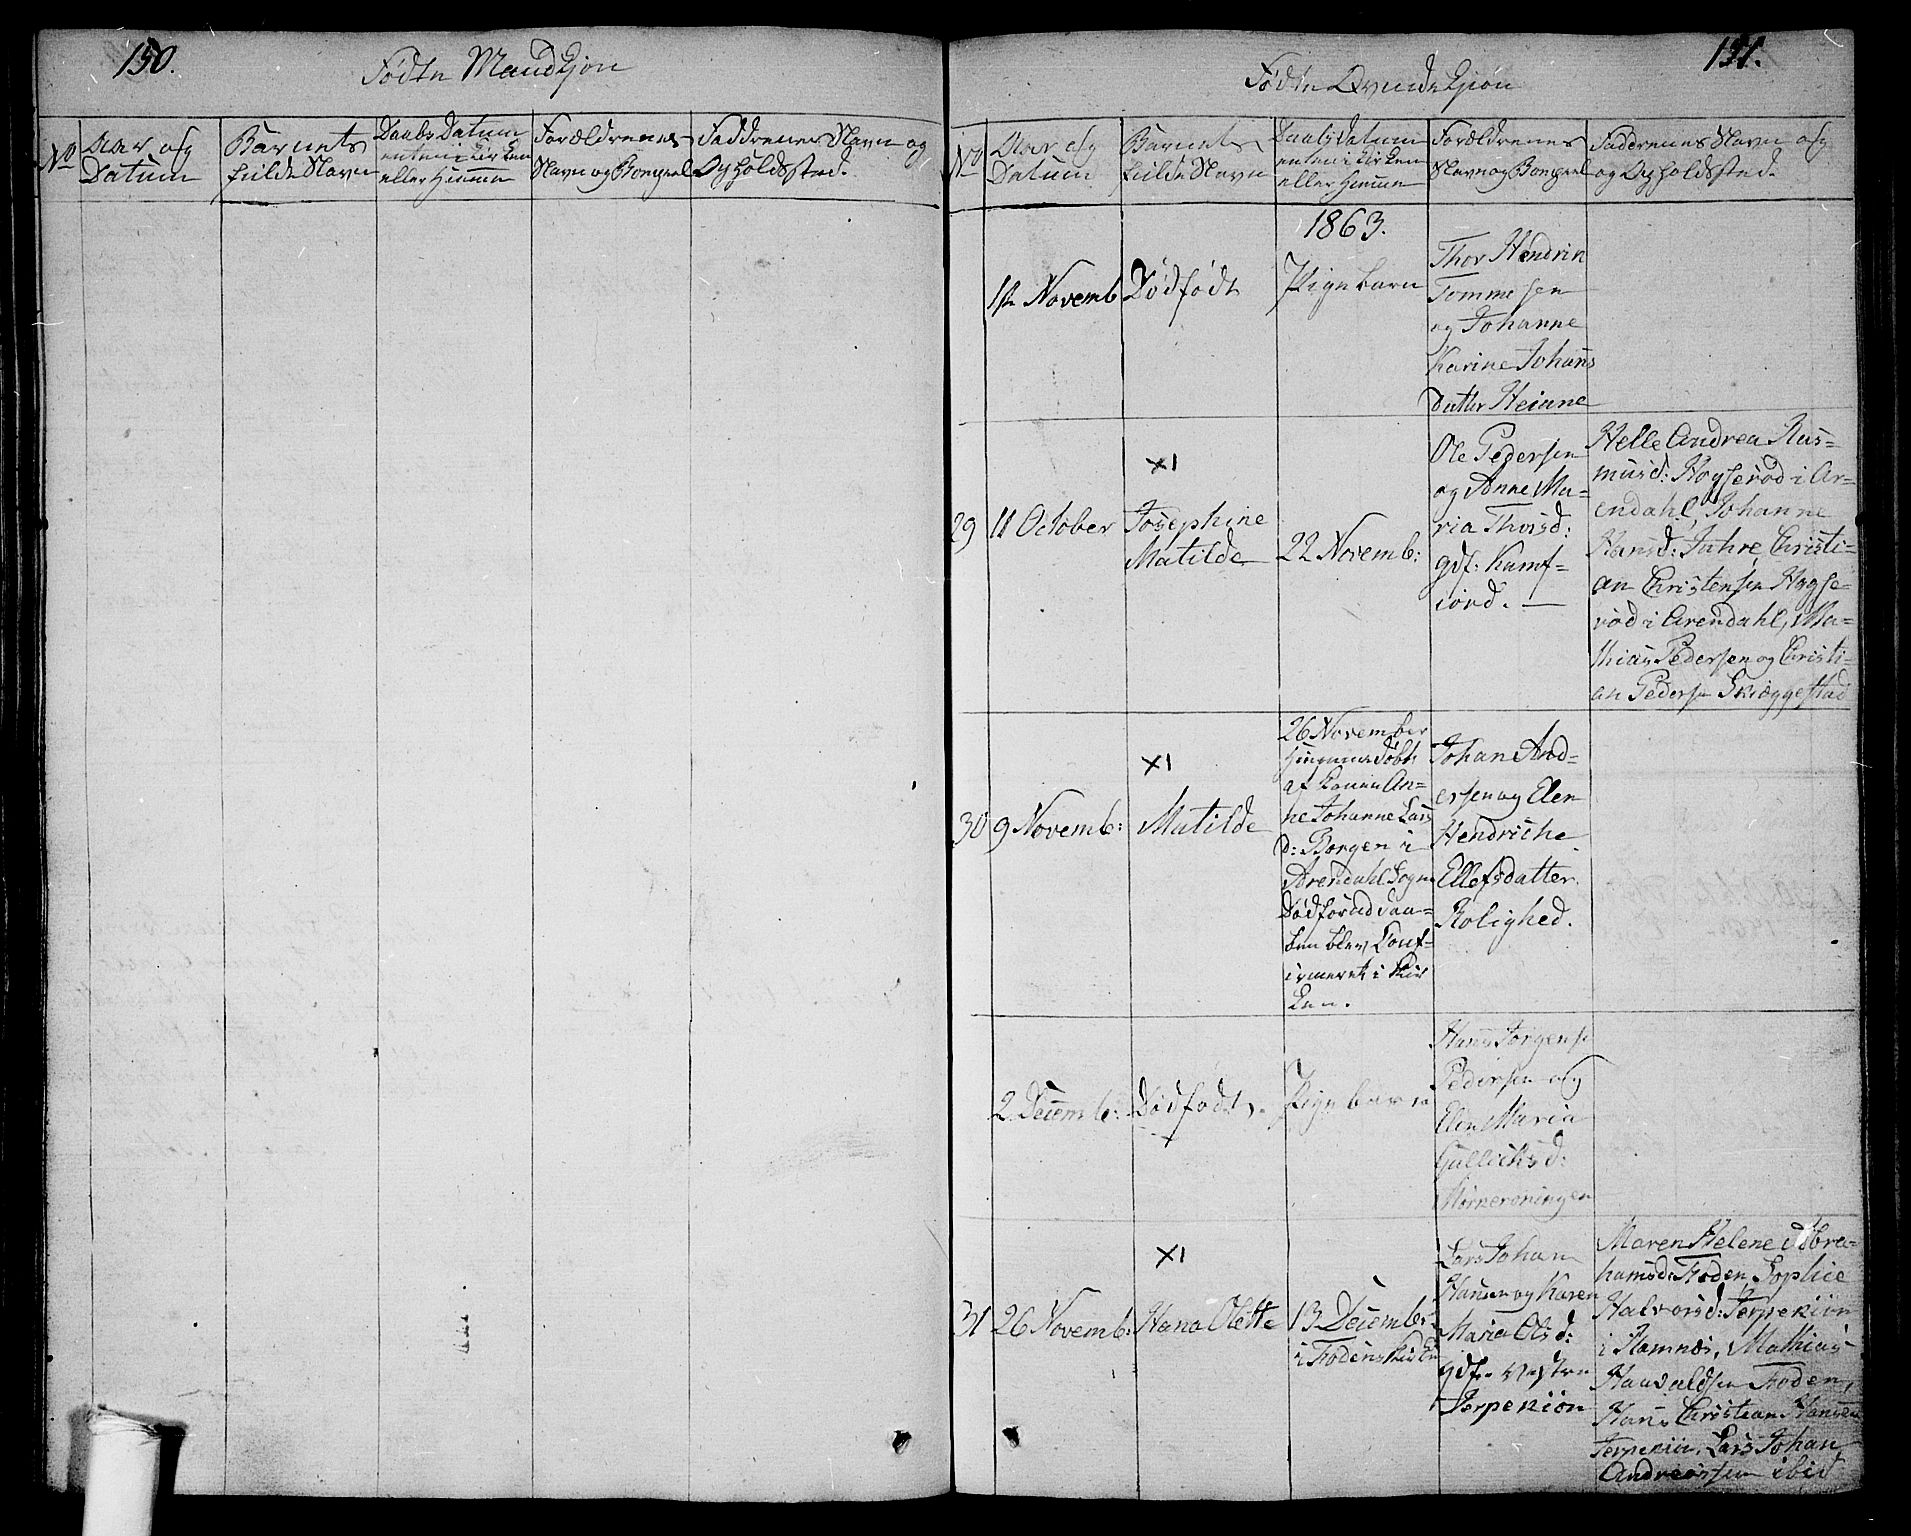 150.
Fødte Mandkjøn
No
Aar og
Datum
Barnets
fulde Navn
Daabs Datum
enten i Kirken
eller Hiemme
Forældrenes
Navn og Bopæl
Faddrenes Navn og
Opholdssted.
151.
Fødte Qvindekjøn
No
Aar og
Datum
Barnets
fulde Navn
Daabs Datum
enten i Kirken
eller Hiemme
Forældrenes
Navn og Bopæl
Faddrenes Navn og
og Opholdssted.
1863.
1ste Novemb
Dødfødt
Pigebarn
Thor Hendrik
Tommesen
og Johanne
Karine Johans
datter Heiane
29
11 October
X1
Josephine
Matilde
22 Novemb:
Ole Pedersen
og Anne Ma-
ria Thorsd:
gdf: Kamf-
iord. —
Helle Andrea Ras-
musd: Hogserød i Ar-
endahl, Johanne
Hansd: Jahre, Christi-
an Christensen Hogse-
rød i Arendahl, Ma-
thias Pedersen og Christi-
an Pedersen Skiæggestad
30
9 Novemb:
X1
Matilde
26 November
Hiemmedøbt
af Konen An-
ne Johanne Lars
d: Borgen i
Arendahl Sogn
Død forend daa-
ben blev Conf-
irmeret i Kir
ken.
Johan And-
ersen og Elen
Hendriche
Ellefsdatter
Rolighed.
2 Decemb:
Dødfødt.
Pigebarn
Hans Jørgen
Pedersen og
Elen Maria
Gullichsd:
31
26 Novemb:
X1
Hana Olette
13 Decemb:
i Fodens Kirke
Lars Johan
Hansen og Karen
Maria Olsd:
gdf. Vestre
Jerpekiøn
Maren Helene Abra-
hamsd: Foden, Sophie
Halvorsd: Jerpekiøn
i Ramnæs, Mathias
Haavaldsen Foden,
Hans Christian Hansen
Jerpekiøn, Lars Johan
Andreassen ibid